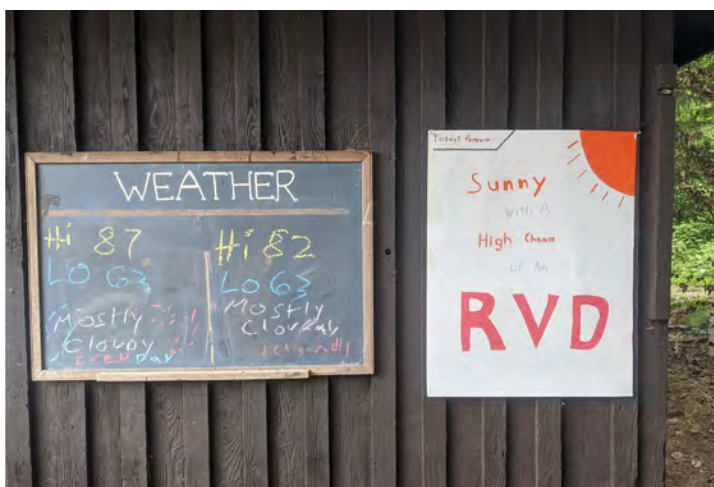 WEATHER
Hi 87
LO 63
Mostly
Cloudy
crew Day
Hi 82
LO 63
Mostly
Clouday
Today's Forecast:
Sunny
with A
High Chance
of An
RVD